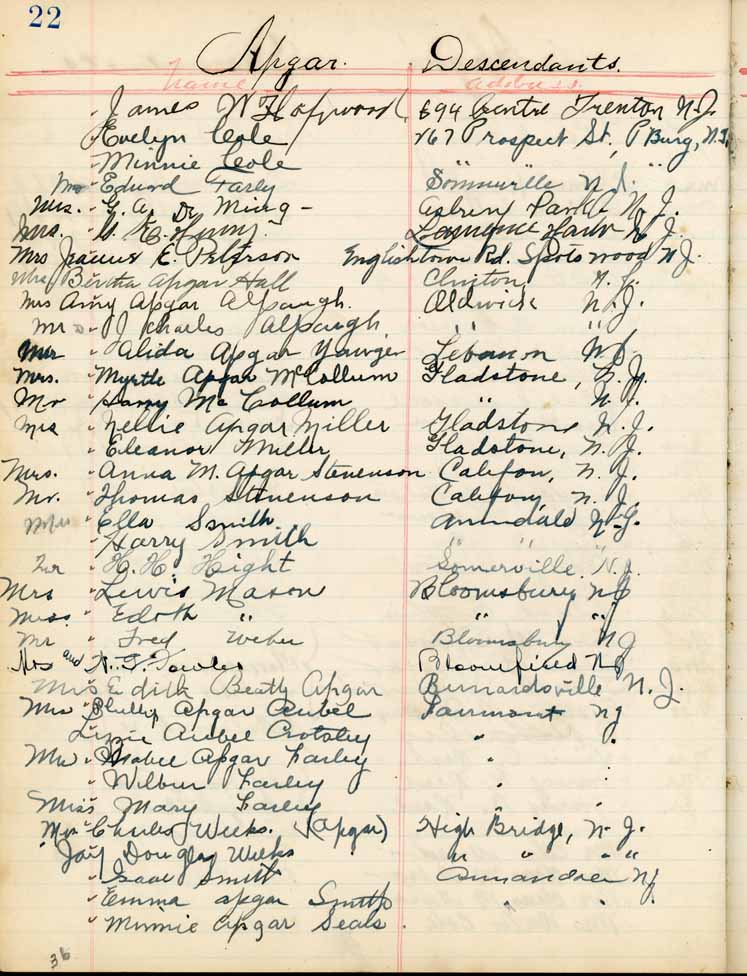 22
Apgar. Descendants.
name address
James W Hopwood 694 Centre Trenton N.J.
Evelyn Cole 267 Prospect St, P'Burg, N.J.
Minnie Cole " " "
Edward Farley Sommerville N.J.
Mrs. G. A. De Ming - Asbury Park N.J.
Mrs. N.J.
Mrs E. Peterson Englishtown Rd. Spotswood N.J.
Mrs Bertha Apgar Hall Clinton N.J.
Mrs Amy Apgar Alpaugh. Oldwick N.J.
Mr J. Charles Alpaugh, " "
Alida Apgar Yawger Lebanon NJ.
Mrs. Myrtle Apgar McCollum Gladstone, N.J.
Mr Harry McCollum " N.J.
Mrs Nellie Apgar Miller Gladstone N.J.
" Eleanor Miller Gladstone, N.J.
Mrs. Anna M. Apgar Stevenson Califon, N.J.
Mr. Thomas Stevenson Califon, N.J.
Mrs Ella Smith Annandale N.J.
" Harry Smith " "
H. H. Hight Somerville N.J.
Mrs Lewis Mason Bloomsbury NJ
Miss Edith " " "
Mr Fred Weber Bloomsbury NJ
Mrs and Bloomfield NJ
Mrs Edith Beatty Apgar Bernardsville N.J.
Mrs Apgar Aubel Fairmont NJ
Lizzie Aubel Crotsley "
Mrs Mabel Apgar Farley "
" Wilbur Farley "
Miss Mary Farley
Mrs Charles Weeks. (Apgar) High Bridge, N.J.
Jay Douglas Weeks " " " "
" Isaac Smith Annandale NJ
" Emma Apgar Smith " "
" Minnie Apgar Seals.
36